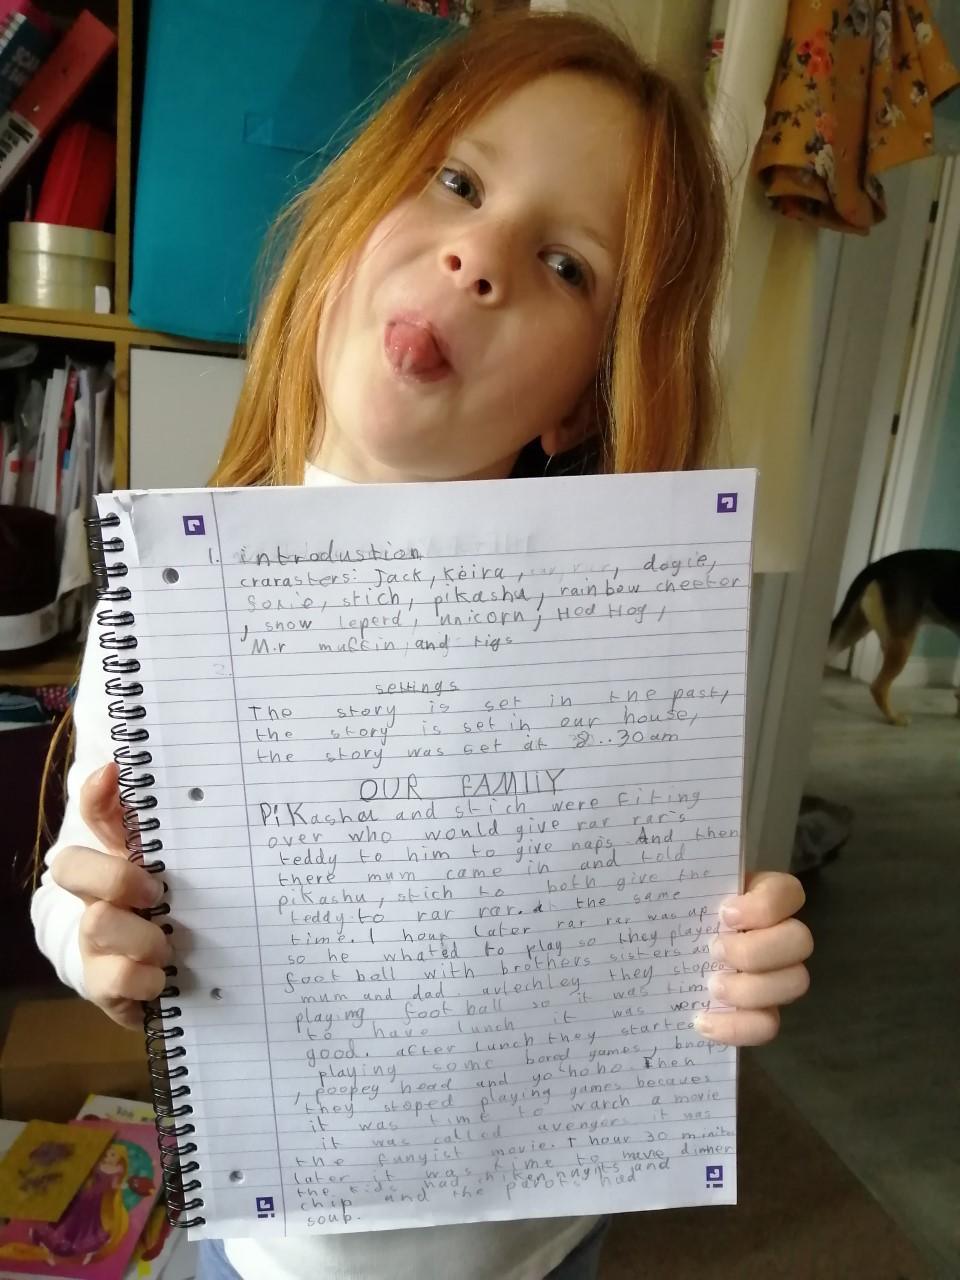 1. introdustion
crarasters: Jack, Keira, , dogie,
soxie, stich, pikashu, rainbow cheetor
, snow leperd, unicorn, Hed Hog,
Mr muffin, and tigs
2.
settings
The story is set in the past,
the story is set in our house,
the story was set at 8..30am
OUR FAMLIY
PiKashu and stich were fiting
over who would give rar rar's
teddy to him to give naps. And then
there mum came in and told
pikashu, stich to both give the
teddy to rar rar. at the same
time. 1 hour later rar rar was up
so he whated to play so they played
foot ball with brothers sisters an
mum and dad. avtechley they stoped
playing foot ball so it was tim
to have lunch it was very
good. after lunch they started
playing some bored games,
, poopey head and yo ho ho. Then
they stoped playing games becaues
it was time to warch a movie
it was called avengers it was
the funyist movie. 1 hour 30 minite
later it was time to dinner
the kids had chiken nagits and
chip and the parots had
soup.